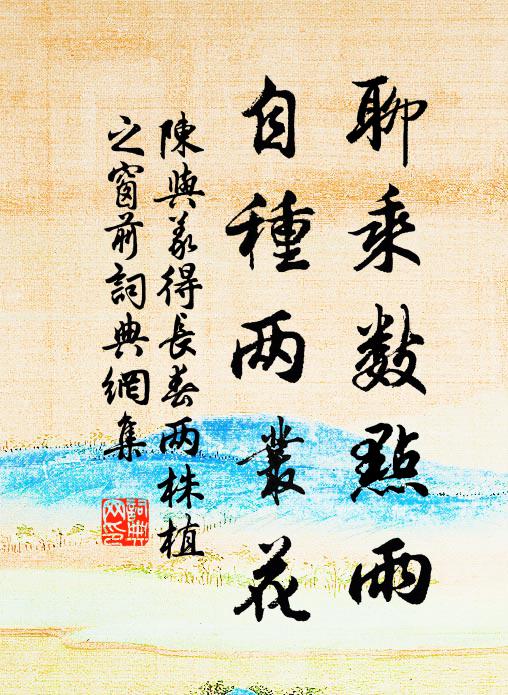 聊乘數點雨
自種两叢花
陳與義得長春两株植
之窗前詞典網集
詞典网印